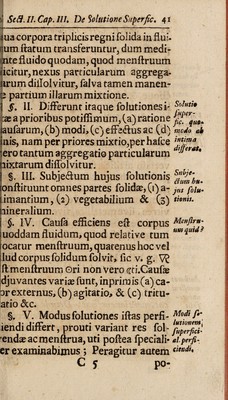 Sect. II. Cap. III. De Solutione Superfic. 41
ua corpora triplicis regni solida in flui-
um statum transferuntur, dum medi-
nte fluido quodam, quod menstruum
icitur, nexus particularum aggrega-
arum dissolvitur, salva tamen manen-
e partium illarum mixtione.
§. II. Differunt itaque solutiones i-
æ a prioribus potissimum, (a) ratione
ausarum, (b) modi, (c) effectus ac (d)
nis, nam per priores mixtio, per hasce
ero tantum aggregatio particularum
nixtarum dissolvitur.
Solutio
super-
fic. quo-
modo ab
intima
differat.
§. III. Subjectum hujus solutionis
onstituunt omnes partes solidæ, (1) a-
imantium, (2) vegetabilium & (3)
nineralium.
Subje-
ctum hu-
jus solu-
tionis.
§. IV. Causa efficiens est corpus
uoddam fluidum, quod relative tum
ocatur menstruum, quatenus hoc vel
lud corpus solidum solvit, sic v. g.
st menstruum ri non vero ti. Causæ
djuvantes variæ sunt, inprimis (a) ca-
or externus, (b) agitatio, & (c) tritu-
atio &c.
Menstru-
um quid?
§. V. Modus solutiones istas perfi-
iendi differt, prouti variant res sol-
endæ ac menstrua, uti postea speciali-
er examinabimus; Peragitur autem
Modi so-
lutionem
superfici-
al. perfi-
ciendi,
C 5 po-